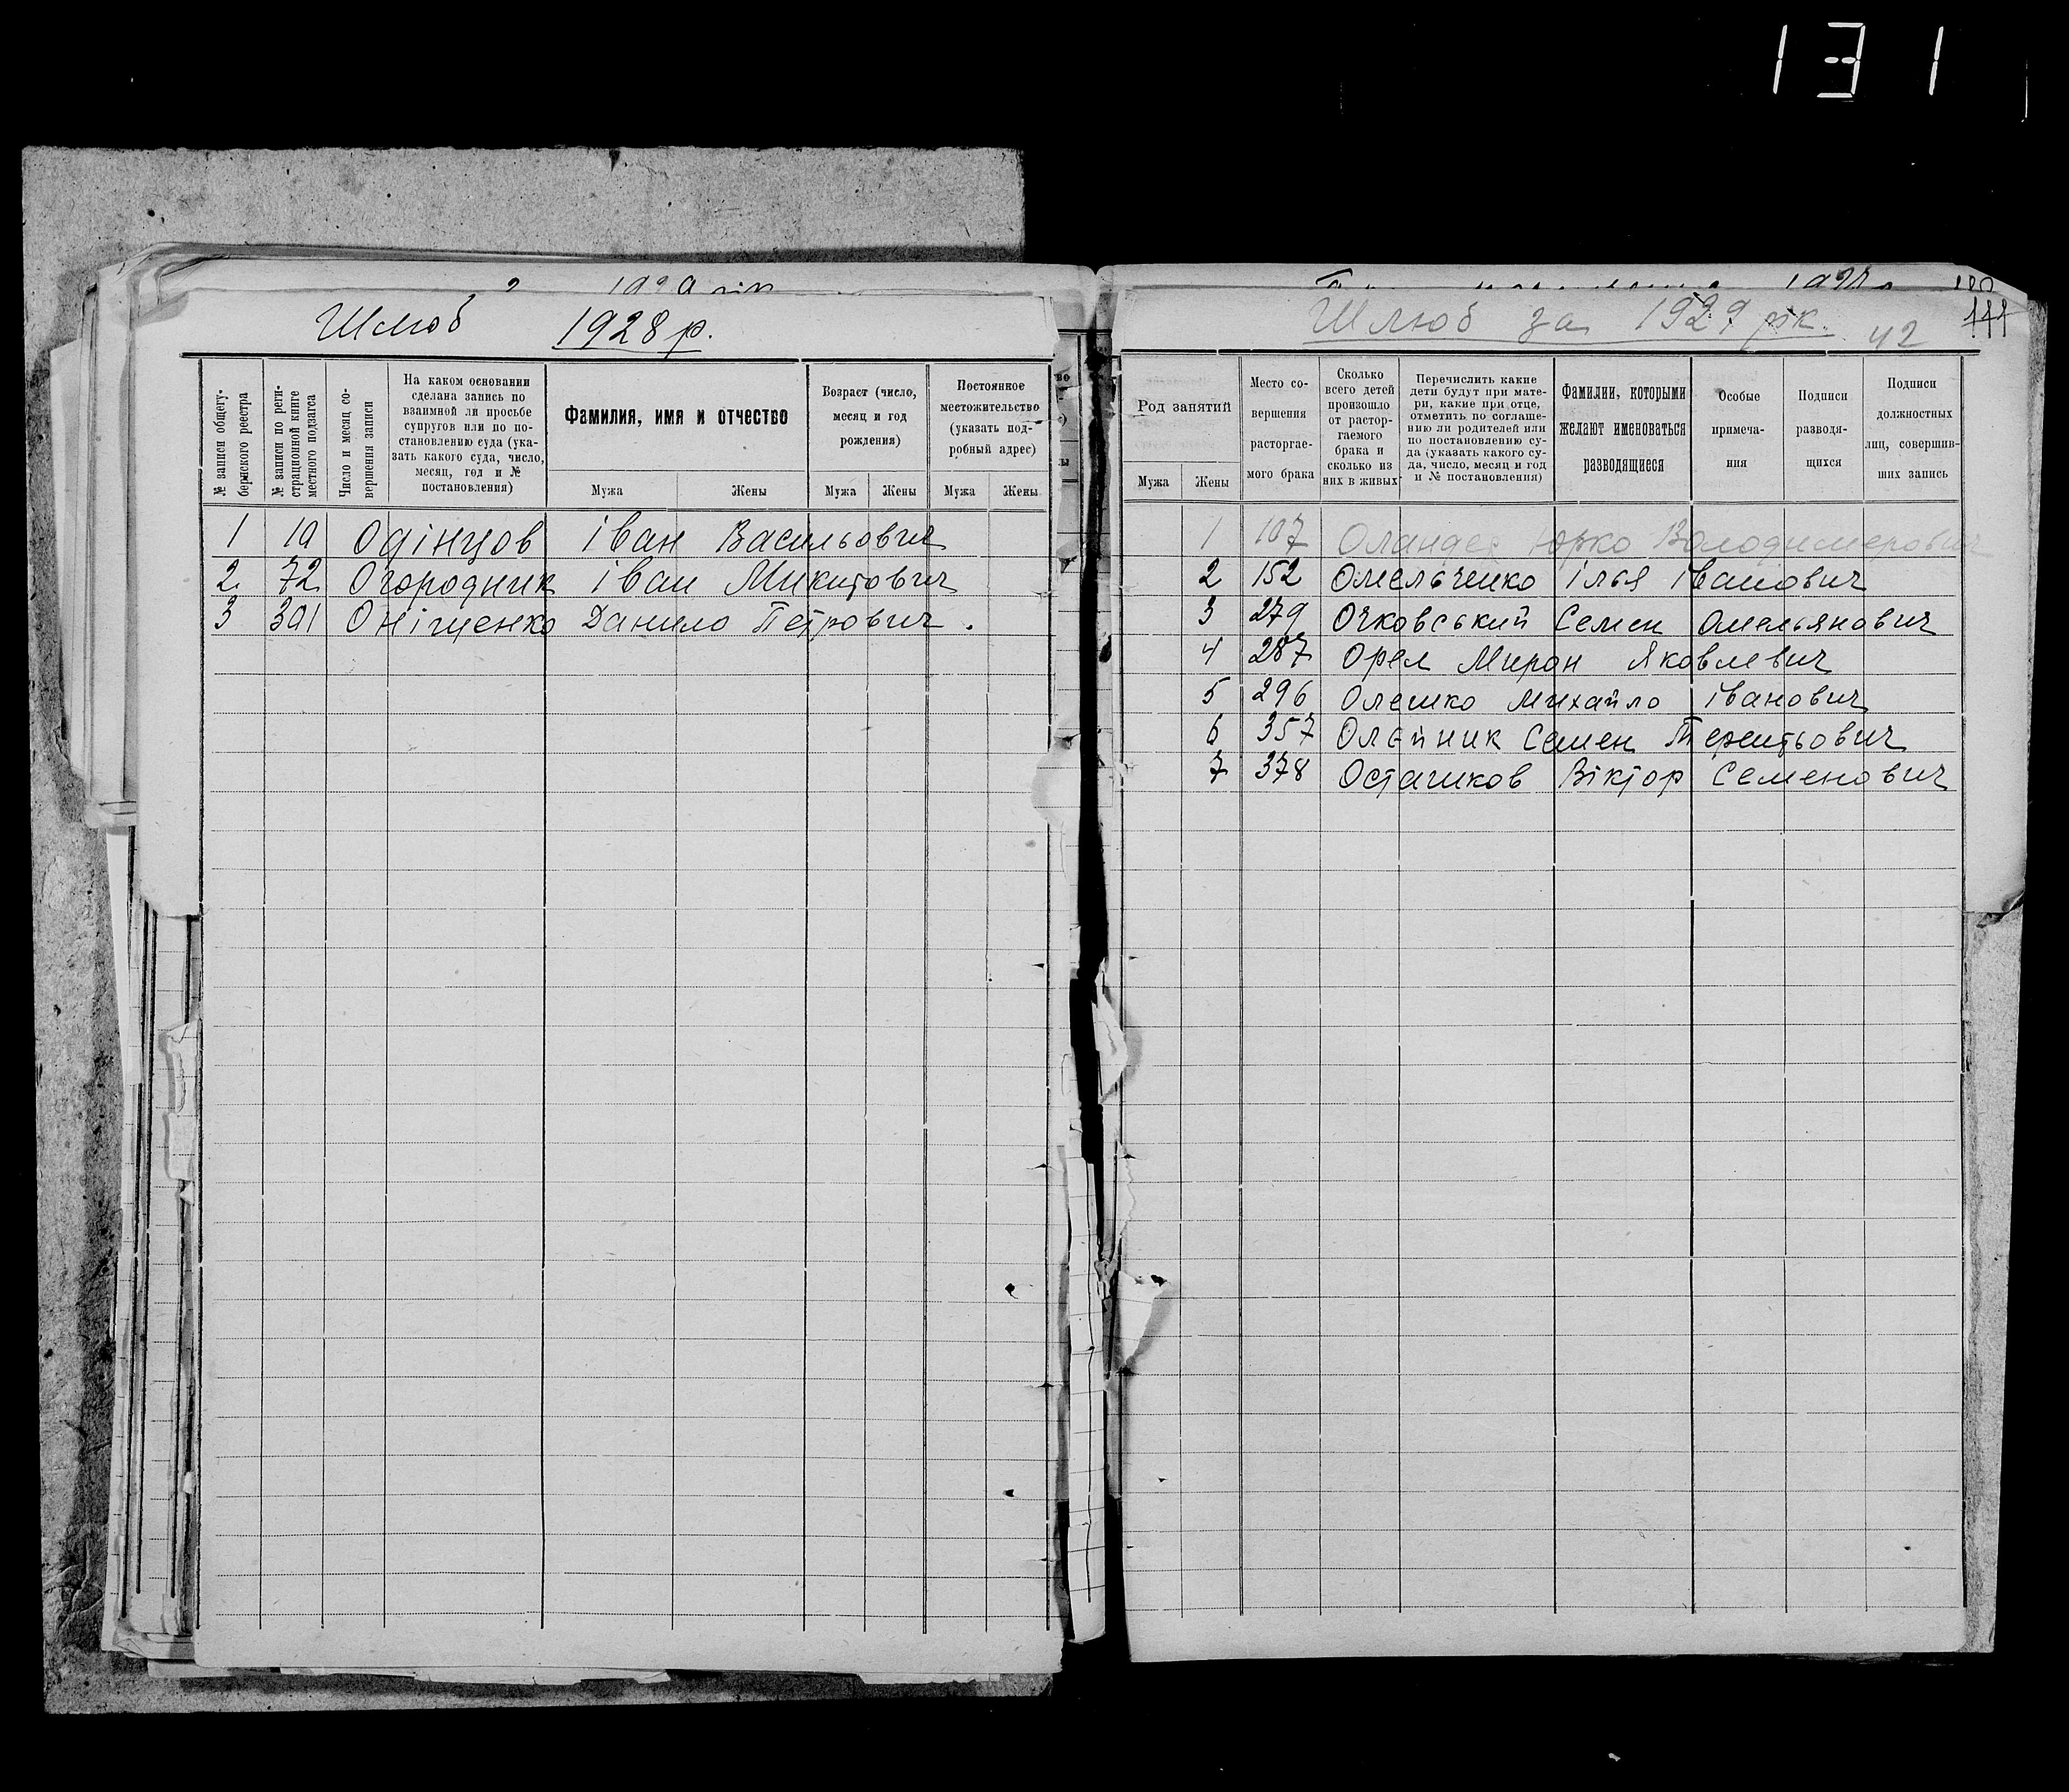 131
1929 рік
Шлюб 1928 р.
№ записи общегу-
бернского реестра
№ записи по реги-
страционной книге
местного подзагса
Число и месяц со-
вершения записи
На каком основании
сделана запись по
взаимной ли просьбе
супругов или по по-
становлению суда (ука-
зать какого суда, число,
месяц, год и №
постановления)
Фамилия, имя и отчество
Мужа Жены
Возраст (число,
месяц и год
рождения)
Мужа Жены
Постоянное
местожительство
(указать под-
робный адрес)
Мужа Жены
1 19 Одінцов Іван Васильович
2 72 Огородник Іван Микитович
3 391 Оніщенко Данило Петрович.
Шлюб за 1929 рк. 42
Род занятий
Мужа Жены
Место со-
вершения
расторгае-
мого брака
Сколько
всего детей
произошло
от растор-
гаемого
брака и
сколько из
них в живых
Перечислить какие
дети будут при мате-
ри, какие при отце,
отметить по соглаше-
нию ли родителей или
по постановлению су-
да (указать какого су-
да, число, месяц и год
и № постановления)
Фамилии, которыми
желают именоваться
разводящиеся
Особые
примеча-
ния
Подписи
разводя-
щихся
Подписи
должностных
лиц, совершив-
ших запись
1 107 Юрко Володимерович
2 152 Омельченко Ілья Іванович
3 279 Очковський Семен Омельянович
4 287 Орел Мирон Яковлевич
5 296 Олешко Михайло Іванович
6 357 Олейник Семен Терентьович
7 378 Осташков Віктор Семенович